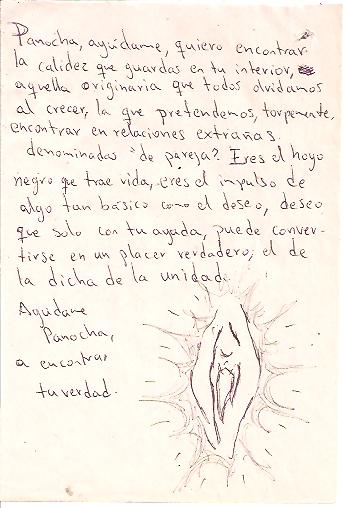 Panocha, ayúdame, quiero encontrar
la calidez que guardas en tu interior,
aquella originaria que todos olvidamos
al crecer, la que pretendemos, torpemente,
encontrar en relaciones extrañas,
denominadas "de pareja? Eres el hoyo
negro que trae vida, eres el impulso de
algo tan básico como el deseo, deseo
que solo con tu ayuda, puede conver-
tirse en un placer verdadero; el de
la dicha de la unidad.
Ayúdame
Panocha,
a encontrar
tu verdad.